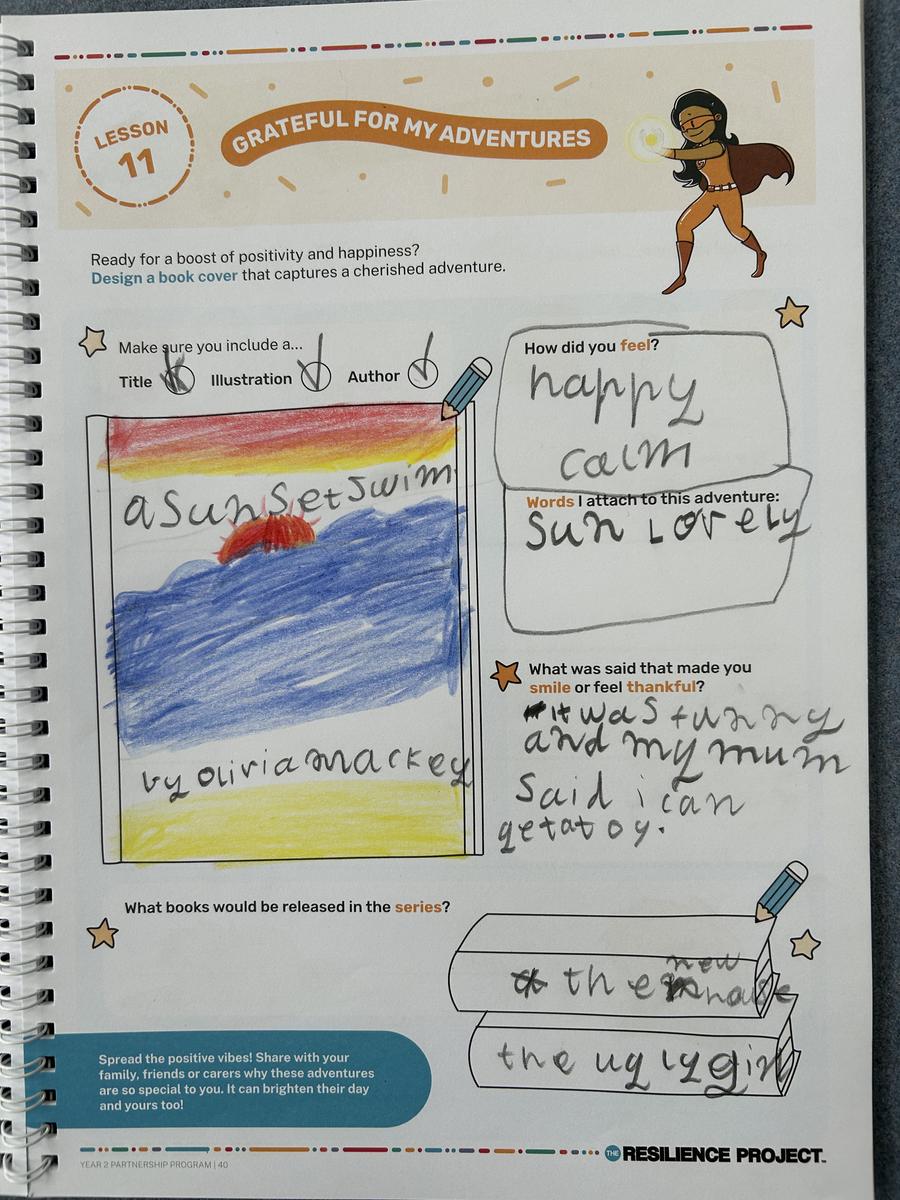 LESSON
11
GRATEFUL FOR MY ADVENTURES
Ready for a boost of positivity and happiness?
Design a book cover that captures a cherished adventure.
Make sure you include a...
Title Illustration Author
a sunset swim
by olivia mackey
How did you feel?
happy
calm
Words I attach to this adventure:
sun Lovely
What was said that made you
smile or feel thankful?
it was funny
and my mum
said i can
get a toy.
What books would be released in the series?
the new house
the ugly girl
Spread the positive vibes! Share with your
family, friends or carers why these adventures
are so special to you. It can brighten their day
and yours too!
YEAR 2 PARTNERSHIP PROGRAM | 40
THE RESILIENCE PROJECT.